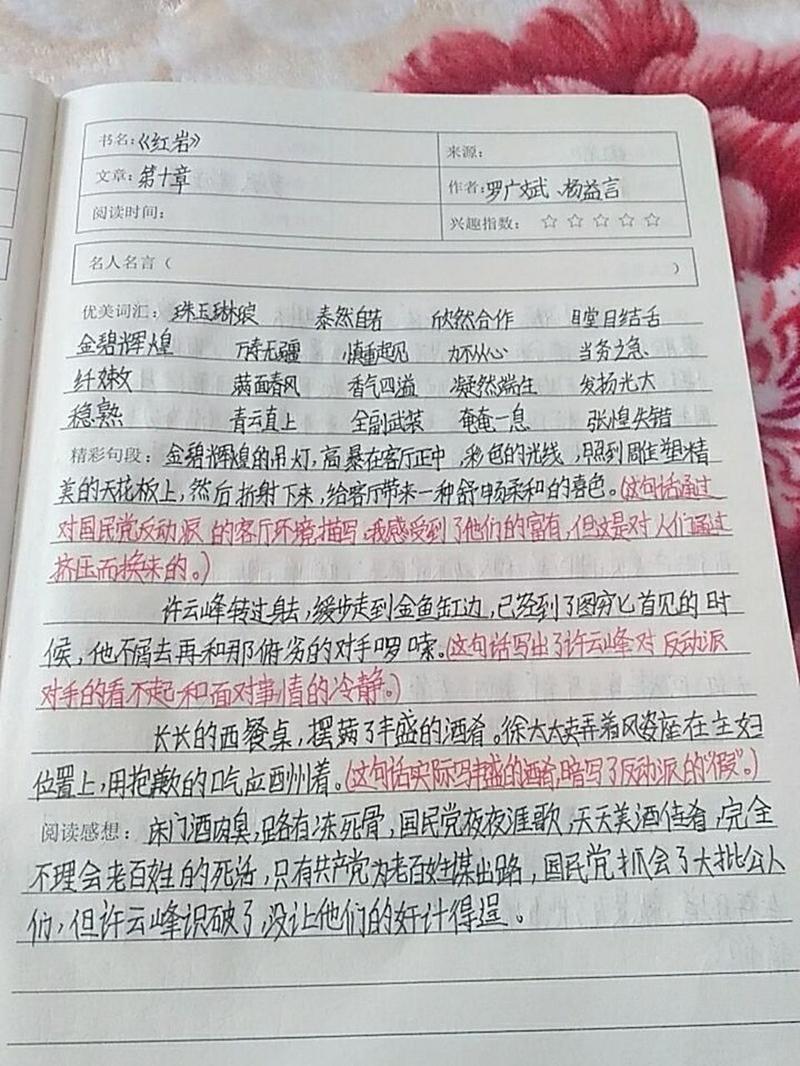 书名：《红岩》
来源：
文章：第十章
作者：罗广斌、杨益言
阅读时间：
兴趣指数：☆ ☆ ☆ ☆ ☆
名人名言（ ）
优美词汇：珠玉琳琅 泰然自若 欣然合作 瞠目结舌
金碧辉煌 万寿无疆 慎重起见 力不从心 当务之急
纤嫩 满面春风 香气四溢 凝然端住 发扬光大
稳熟 青云直上 全副武装 奄奄一息 张惶失错
精彩句段：金碧辉煌的吊灯，高悬在客厅正中，彩色的光线，照到雕塑精
美的天花板上，然后折射下来，给客厅带来一种舒畅柔和的喜色。（这句话通过
对国民党反动派的客厅环境描写，我感受到了他们的富有，但这是对人们通过
挤压而换来的。）
许云峰转过身去，缓步走到金鱼缸边，已经到了图穷匕首见的时
候，他不屑去再和那俯劣的对手啰嗦。（这句话写出了许云峰对反动派
对手的看不起和面对事情的冷静。）
长长的西餐桌，摆满了丰盛的酒肴。徐太太卖弄着风姿座在主妇
位置上，用抱歉的口吃应酬着。（这句话实际写丰盛的酒肴，暗写了反动派的“假”。）
阅读感想：床门酒肉臭，路有冻死骨，国民党夜夜涯歌，天天美酒佳肴，完全
不理会老百姓的死活，只有共产党为老百姓谋出路，国民党抓会了大批公人
们，但许云峰识破了，没让他们的奸计得逞。